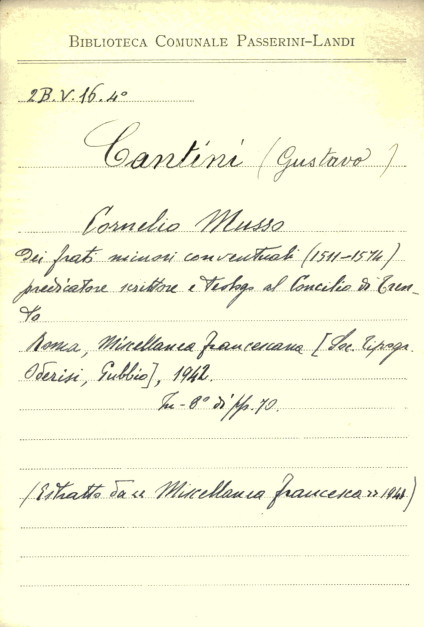 BIBLIOTECA COMUNALE PASSERINI-LANDI
2B.V.16.4°
Cantini (Gustavo)
Cornelio Musso
Dei frati minori conventuali (1511-1574)
predicatore scrittore e teologo al Concilio di Tren-
to
Roma, Miscellanea francescana [Soc. Tipogr.
Oderisi, Gubbio], 1942.
In-8° di pp. 70.
(Estratto da « Miscellanea francesca »